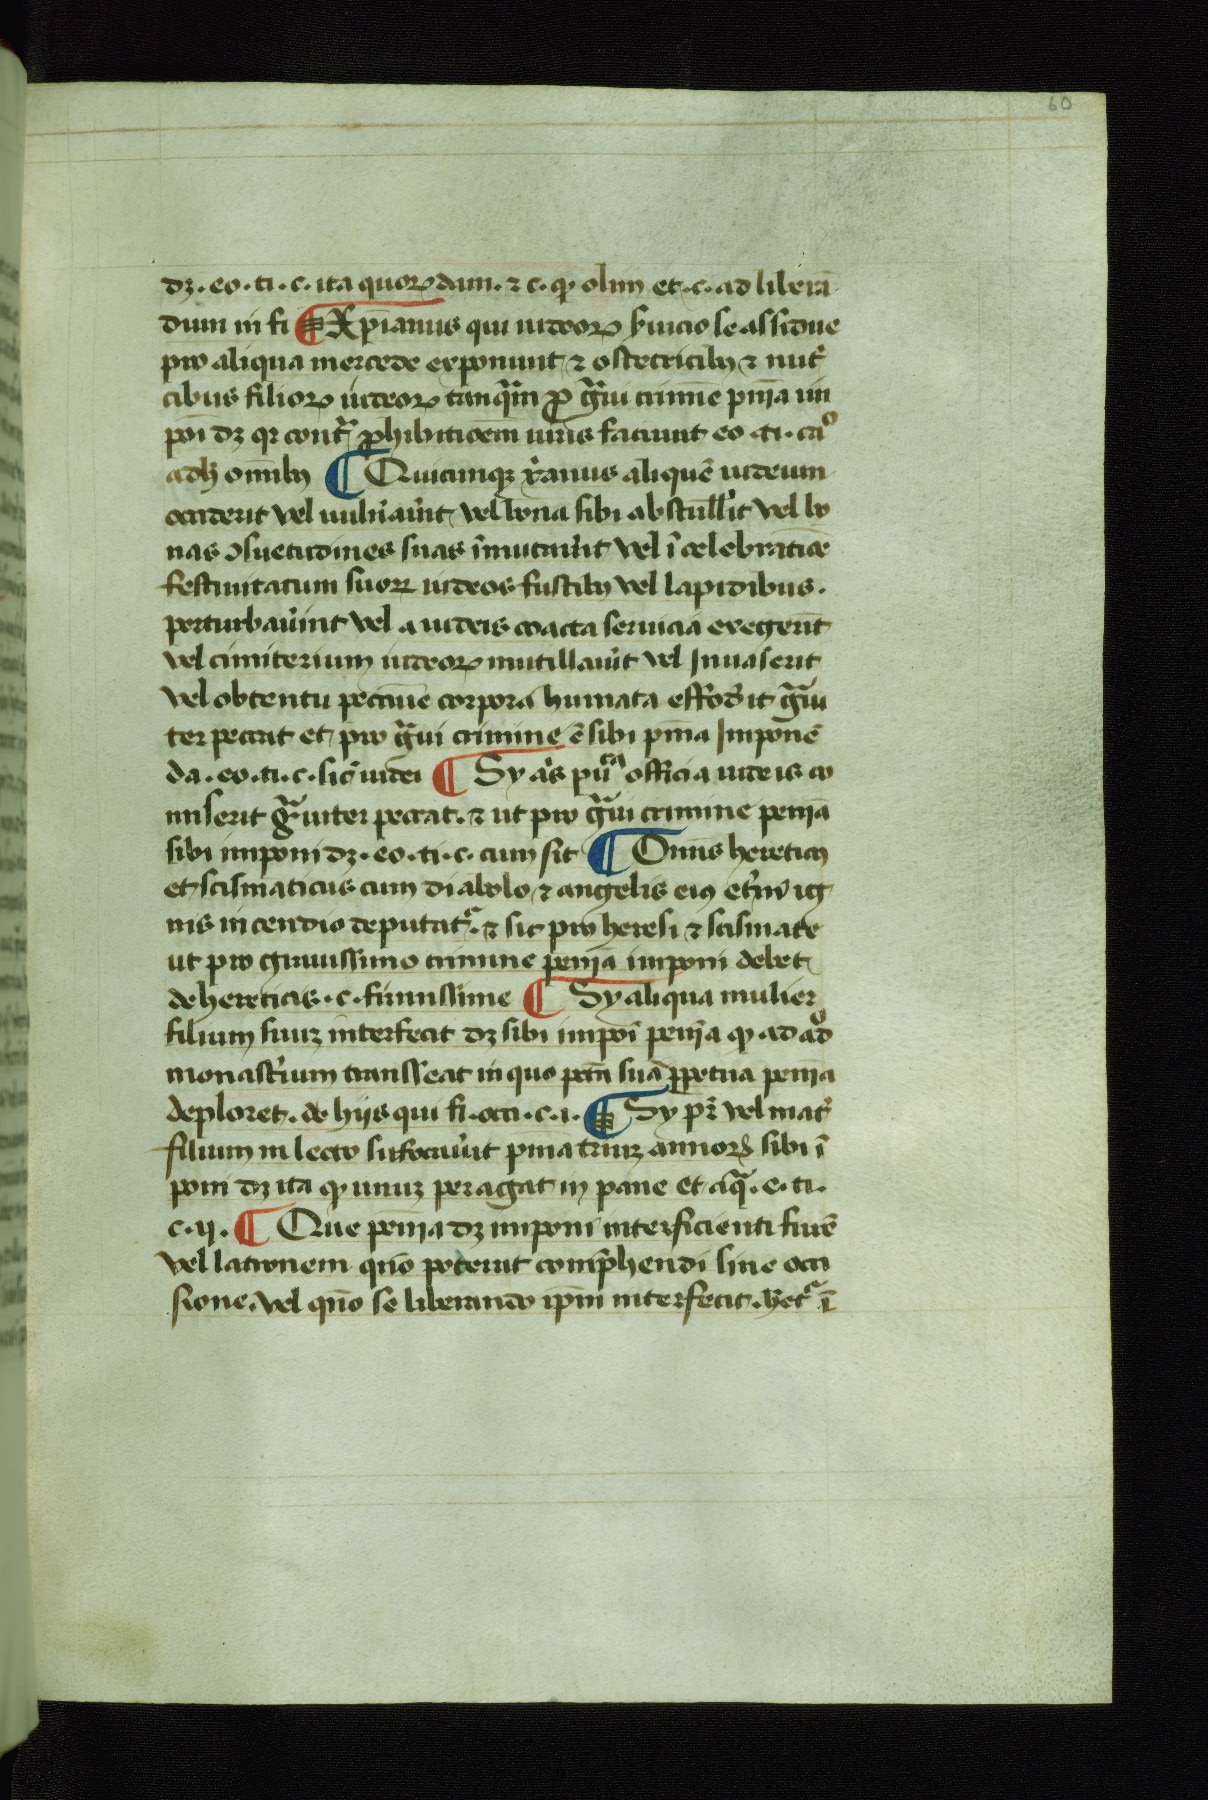 60
dꝫ. eo. ti. c. ita quoꝝdam. ⁊ c. ꝙ olim et. c. ad liberā
dum in fi ¶ Xp̄ianus qui iudeoꝝ ẜuicio se assidue
pro aliqua mercede exponunt ⁊ ostetricibꝫ ⁊ nutⁱ
cibus filioꝝ iudeoꝝ tanqᵃm ꝓ gᵃui crimīe pn̄ia im
poī dꝫ qꝛ contᵃ ꝓhibiticōem iuris faciunt eo. ti. cᵃᵒ
ad hͨ om̄ibꝫ ¶ Quicunqꝫ xᵒanus aliquē iudeum
occiderit vel uulnˀauˀit vel bona sibi abstullˀit vel bo
nas ꝯsuetudines suas īmutauˀit vel ī celebraticōe
festiuitatum suoꝝ iudeos fustibꝫ vel lapidibus.
perturbauˀint vel a iudeis coacta seruicia exegerīt
vel cimiterium iudeoꝝ mutillauˀit vel Inuaserit
vel obtentu pecunie corpora humata effodˀit gᵃui
ter peccat et pro gᵃui crimine ē sibi pn̄ia Imponē
da. eo. ti. c. sic̄ iudei ¶ Sy aˡs puᶜᵃ officia iudeis co
miserit gᵃuiter peccat. ⁊ ut pro gᵃui crimine penīa
sibi imponi dꝫ. eo. ti. c. cum sit ¶ Om̄is hereticꝰ
et scismaticus cum diabolo ⁊ angelis eiꝰ etˀnˀ ig
nis incendio deputatᵃ. ⁊ sic pro heresi ⁊ scismate
ut pro grauissimo crimine penīa imponi debet
de hereticis. c. firmissime ¶ Sy aliqua mulier
filium suuꝫ interfecit dꝫ sibi impoī penīa ꝙ ad adᵒ
monastˀium transseat in quo pctm̄ suā ꝑpetua penīa
deploret. de hijs qui fi. occi. c. i. ¶ Sy pꝛ̄ vel matˀ
filium in lecto sufocauˀit pnīa triuꝫ annoꝝ sibi ī
poni dꝫ ita ꝙ unuꝫ peragat in pane et aqᵃ. e. ti.
c. ij. ¶ Que penīa dꝫ imponi interficienti furē
vel latronem quō poterit comprˀhendi sine occi
sione. vel quō se liberando ip̄m interfecit. hetᵃ ī